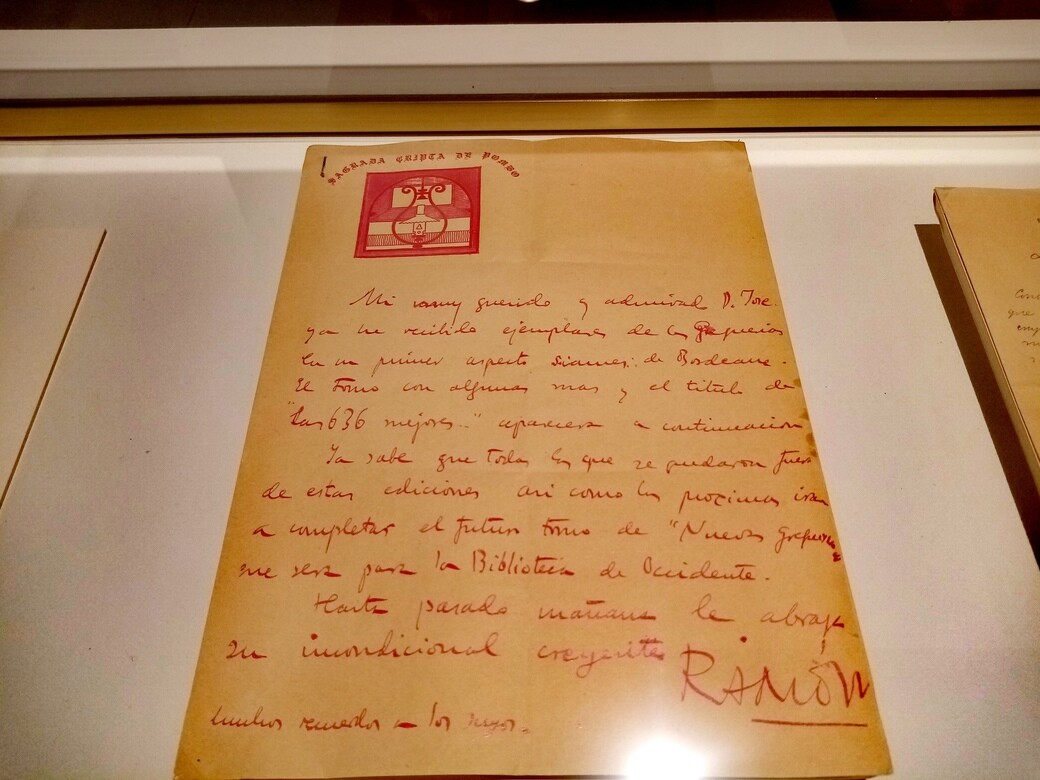 SAGRADA CRIPTA DE POMBO
Mi muy querido y admirad D. Jose
ya he recibido ejemplares de las Greguerias
en un primer aspecto siames: de Bordeaux.
El tomo con algunas mas y el titulo de
"Las 636 mejores.." aparecera a continuacion
Ya sabe que todas las que se quedaron fuera
de estas ediciones asi como las proximas iran
a completar el futuro tomo de "Nuevas greguerias"
que sera para la Biblioteca de Occidente.
Hasta pasado mañana le abraza
su incondicional creyente
RAMÓN
Muchos recuerdos a los suyos.